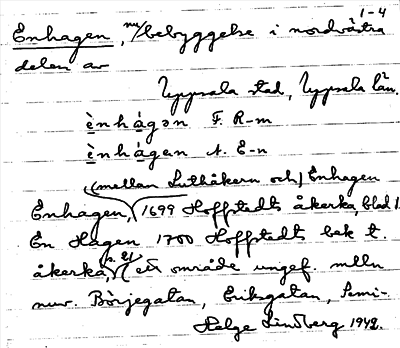 1-4
Enhagen, nu/bebyggelse i nordvästra
delen av
Uppsala stad, Uppsala län.
ènhàgən F. R-m
ènhágen A. E-n
(mellan Luthåkern och) Enhagen
Enhagen, 1699 Hoffstedts åkerka, blad 1.
En Hagen 1700 Hoffstedts bok t.
åkerka, s. 21, ett område ungef. mlln
nuv. Börjegatan, Eriksgatan, Semi-
Helge Lindberg 1942.